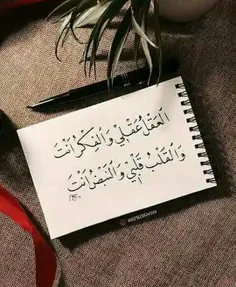 العَقْلُ عَقْلِي وَالفِكْرُ أَنْتَ
وَالقَلْبُ قَلْبِي وَالنَّبْضُ أَنْتَ